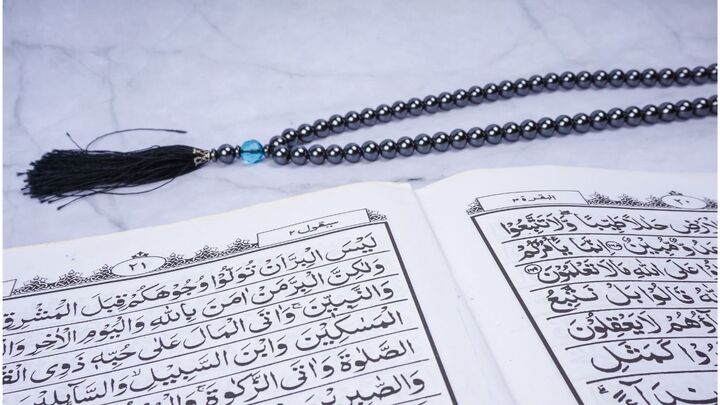 البقرة ٢ ٢٠
حَلٰلًا طَيِّبًا وَّلَا تَتَّبِعُوْا
مُّبِيْنٌ اِنَّمَا يَاْمُرُكُمْ
عَلَى اللّٰهِ مَا لَا تَعْلَمُوْنَ
قَالُوْا بَلْ نَتَّبِعُ
لَا يَعْقِلُوْنَ
كَمَثَلِ
سيقول ٢ ٢١
لَيْسَ الْبِرَّ اَنْ تُوَلُّوْا وُجُوْهَكُمْ قِبَلَ الْمَشْرِقِ
وَلٰكِنَّ الْبِرَّ مَنْ اٰمَنَ بِاللّٰهِ وَالْيَوْمِ الْاٰخِرِ
وَالنَّبِيّٖنَ وَاٰتَى الْمَالَ عَلٰى حُبِّهٖ ذَوِى
الْمَسٰكِيْنَ وَابْنَ السَّبِيْلِ وَالسَّآئِلِيْنَ
الصَّلٰوةَ وَاٰتَى الزَّكٰوةَ
وَالصّٰبِرِيْنَ